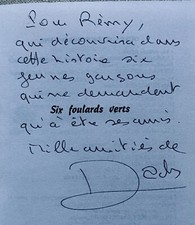 Pour Rémy,
qui découvrira dans
cette histoire six
jeunes garçons
qui ne demandent
Six foulards verts
qu'à être ses amis.
Mille amitiés de
Dachs